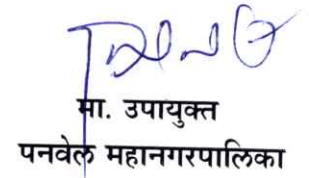 मा. उपायुक्त
पनवेल महानगरपालिका